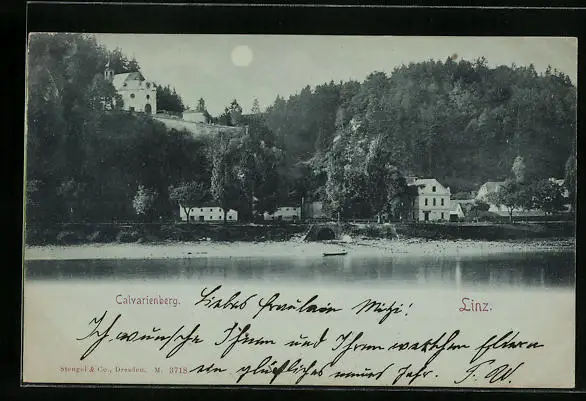 Calvarienberg. Liebes Fräulein Mizi! Linz.
Ich wünsche Ihnen und Ihren werthen Eltern
Stengel & Co., Dresden. M. 3718 ein glückliches neues Jahr. F. W.